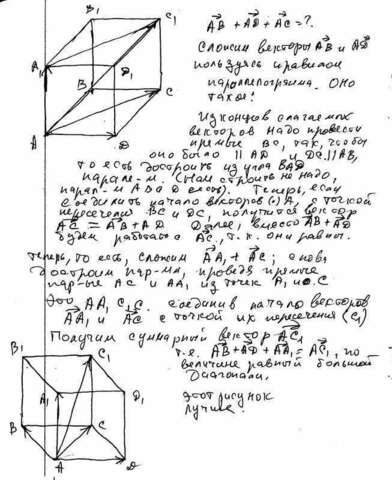 B₁ C₁
A₁ D₁
B C
A D
AB + AD + AC = ?
Сложим векторы AB и AD
пользуясь правилом
параллелограмма. Оно
такое!
Из концов слагаемых
векторов надо провести
прямые BC, так, чтобы
оно было || AD и DC || AB,
то есть достроить из угла BAD
парале-м. (Нам строить не надо,
парал-м ABCD есть). Теперь, если
соединить начало векторов (·)A, с точкой
пересечения BC и DC, получится вектор
AC = AB + AD Далее, вместо AB + AD
будем работать с AC, т.к. они равны.
Теперь, то есть, сложим AA₁ + AC; снова
достроим пар-мм, проведя прямые
пар-ые AC и AA₁ из точек A₁ и C
Это AA₁C₁C. соединив начало векторов
AA₁ и AC с точкой их пересечения (C₁)
Получим суммарный вектор AC₁
т.е. AB + AD + AA₁ = AC₁, по
величине равный большой
Диагонали.
этот рисунок
лучше.
B₁ C₁
A₁ D₁
B C
A D